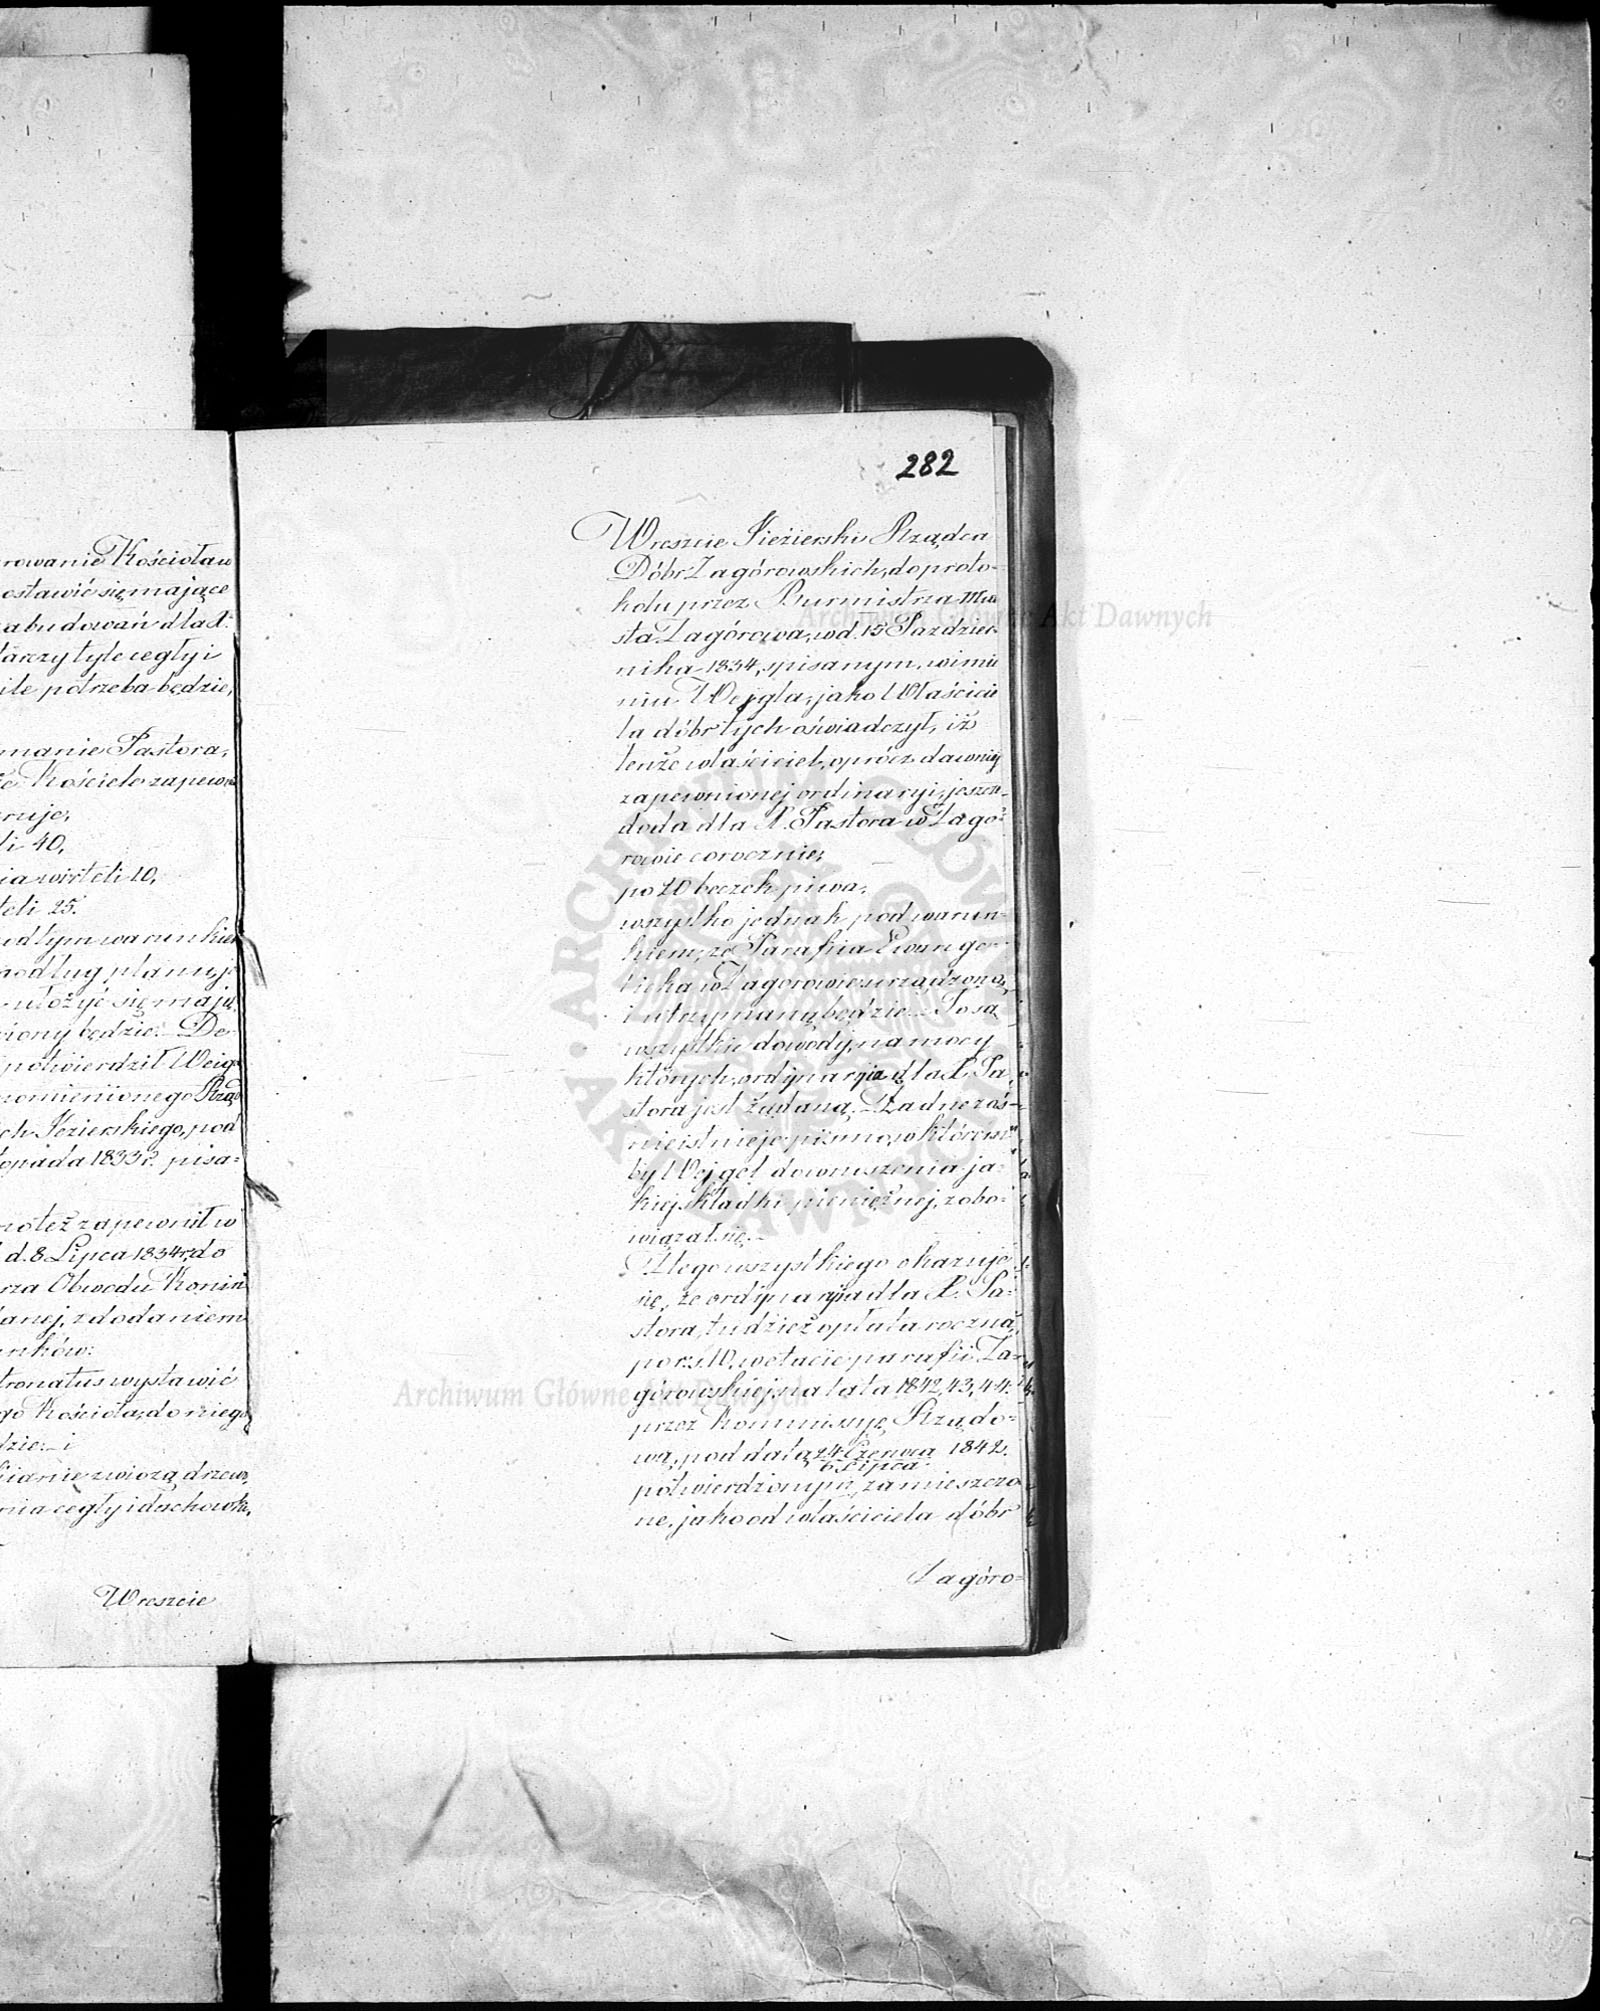 rowanie Kościoław
ostawić się mające
abudowań dla X.
tarczy tyle cegły i
ile potrzeba będzie,
manie Pastora,
Kościele zapewnia
ruje,
li 40,
ia wierteli 10,
teli 25.
od tym warunkiem
podług planu, ja
ułożyć się mają
iony będzie. De
potwierdził Weig
pomienionego Rząd
ch Jezierskiego, pod
opada 1833 r. pisa-
noteż zapewnił w
d. 8 Lipca 1834 r. do
rza Obwodu Konin
anej, z dodaniem
nków:
tronatus wystawić
go Kościoła, do niego
dzie. i
ianie zwiozą drzewo,
nia cegły i dachówki,
Wreszcie
282
Wreszcie Jezierski Rządca
Dóbr Zagórowskich, do proto-
kołu przez Burmistrza Mia
sta Zagórowa, w d. 15 Paździer-
nika 1834, spisanym, w imie
niu Wejgla, jako Właścicie
la dóbr tych oświadczył, iż
tenże właściciel, oprócz dawniej
zapewnionej ordinaryi, jeszcze
doda dla X. Pastora w Zagó-
rowie corocznie;
po 20 beczek piwa,
wszystko jednak pod warun-
kiem, że Parafia Ewange-
licka w Zagorowie urządzoną,
i utrzymaną będzie. To są
wszystkie dowody, na mocy
których, ordynaryia dla X. Pa
stora jest żądaną. Żadne zaś
nieistnieje pismo, w którem
by Wejgel do wnoszenia ja-
kiej składki pieniężnej, zobo-
wiązał się.
Z tego wszystkiego okazuje
się, że ordynaryia dla X. Pa-
stora, tudzież opłata roczna,
po r.s. 10, w etacie parafii Za-
górowskiej na lata 1842, 43, 44.
przez Kommissyę Rządo-
wą, pod datą 24 Czerwca 1842.
6 Lipca
potwierdzonym, zamieszczo
ne, jako od właściciela dóbr
Zagóro-
ARCHIWUM GŁÓWNE AKT DAWNYCH
Archiwum Główne Akt Dawnych
Archiwum Główne Akt Dawnych